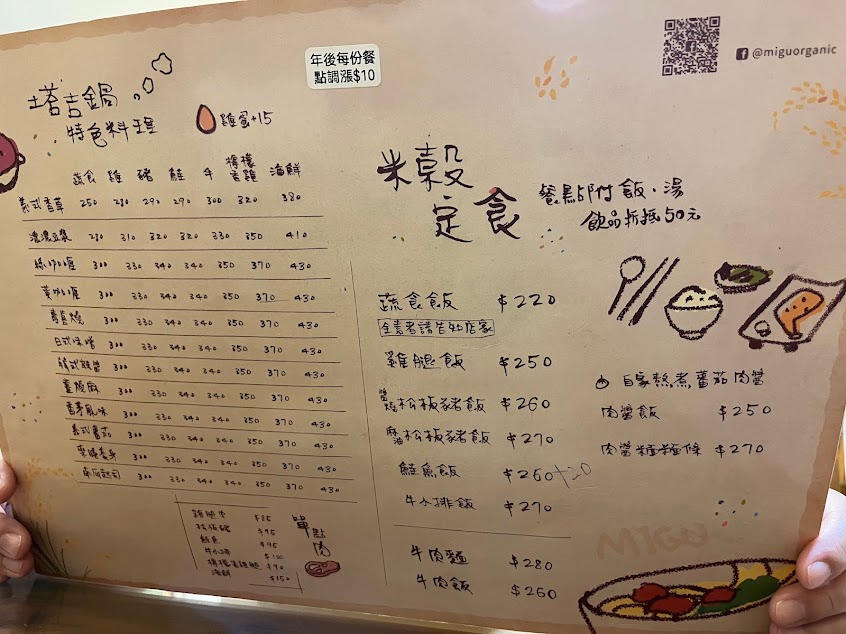 年後每份餐
點調漲$10
@miguorganic
塔吉鍋
特色料理
雞蛋+15
蔬食 雞 豬 鮭 牛 檸檬香雞 海鮮
義式香草 250 280 290 290 300 320 380
濃濃豆漿 280 310 320 320 330 350 410
綠咖喱 300 330 340 340 350 370 430
黃咖喱 300 330 340 340 350 370 430
壽喜燒 300 330 340 340 350 370 430
日式味噌 300 330 340 340 350 370 430
韓式甜醬 300 330 340 340 350 370 430
300 330 340 340 350 370 430
香茅風味 300 330 340 340 350 370 430
泰式番茄 300 330 340 340 350 370 430
300 330 340 340 350 370 430
南瓜起司 300 330 340 340 350 370 430
單點肉
雞腿肉 $85
松板豬 $95
鮭魚 $95
牛小排 $100
$90
海鮮 $150
米穀
定食
餐點附飯、湯
飲品折抵50元
蔬食飯 $220
全素者請告知店家
雞腿飯 $250
醬燒松板豬飯 $260
麻油松板豬飯 $270
鮭魚飯 $260+20
牛小排飯 $270
牛肉麵 $280
牛肉飯 $260
自家熬煮蕃茄肉醬
肉醬飯 $250
肉醬麵麵條 $270
MIGU